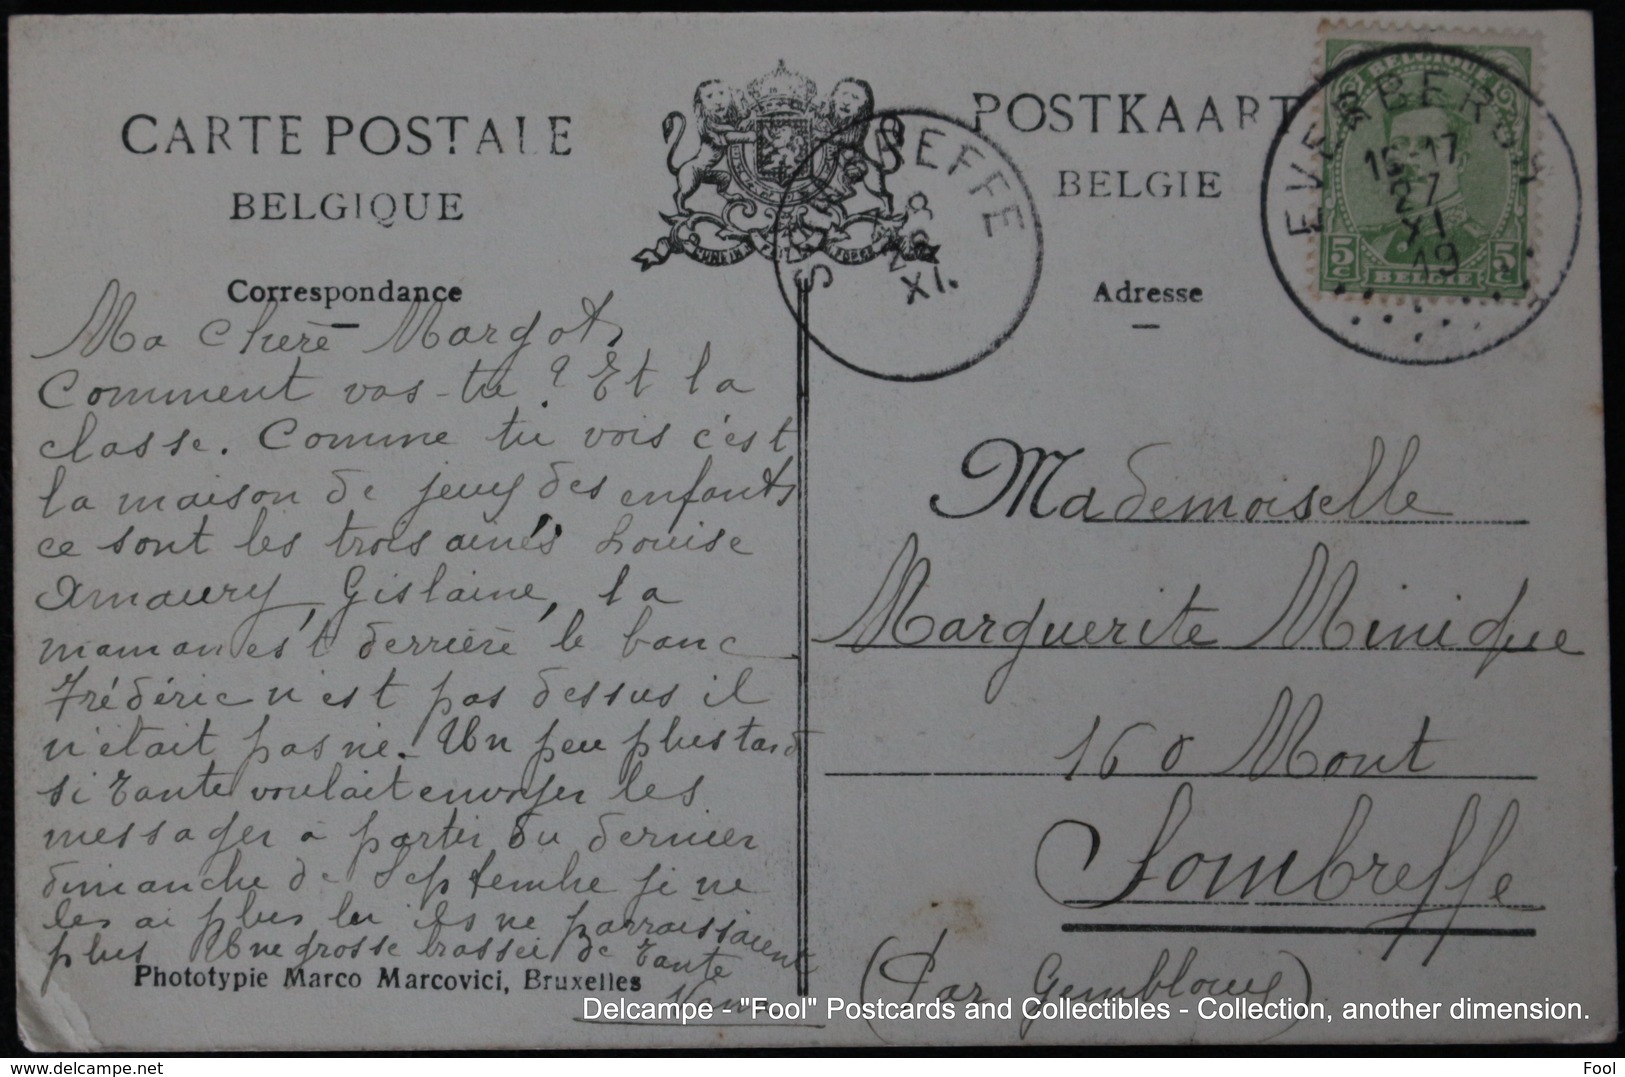 CARTE POSTALE
BELGIQUE
POSTKAART
BELGIE
Correspondance
Adresse
BELGIQUE
5c BELGIE 5c
EVERBERG
16-17
27
XI
19
SOMBREFFE
8
28
XI.
Ma chère Margot,
Comment vas-tu? Et la
classe. Comme tu vois c'est
la maison de jeux des enfants
ce sont les trois ainés Louise
Amaury, Gislaine, la
maman est derrière le banc
Frédéric n'est pas dessus il
n'était pas né. Un peu plus tard
si tante voulait envoyer les
messager à partir du dernier
dimanche de Septembre je ne
les ai plus lu ils ne parraissaient
plus Une grosse de Tante
Phototypie Marco Marcovici, Bruxelles
Mademoiselle
Marguerite Minique
160 Mont
Sombreffe
(Par Gembloux)
Delcampe - "Fool" Postcards and Collectibles - Collection, another dimension.
delcampe.net
Fool